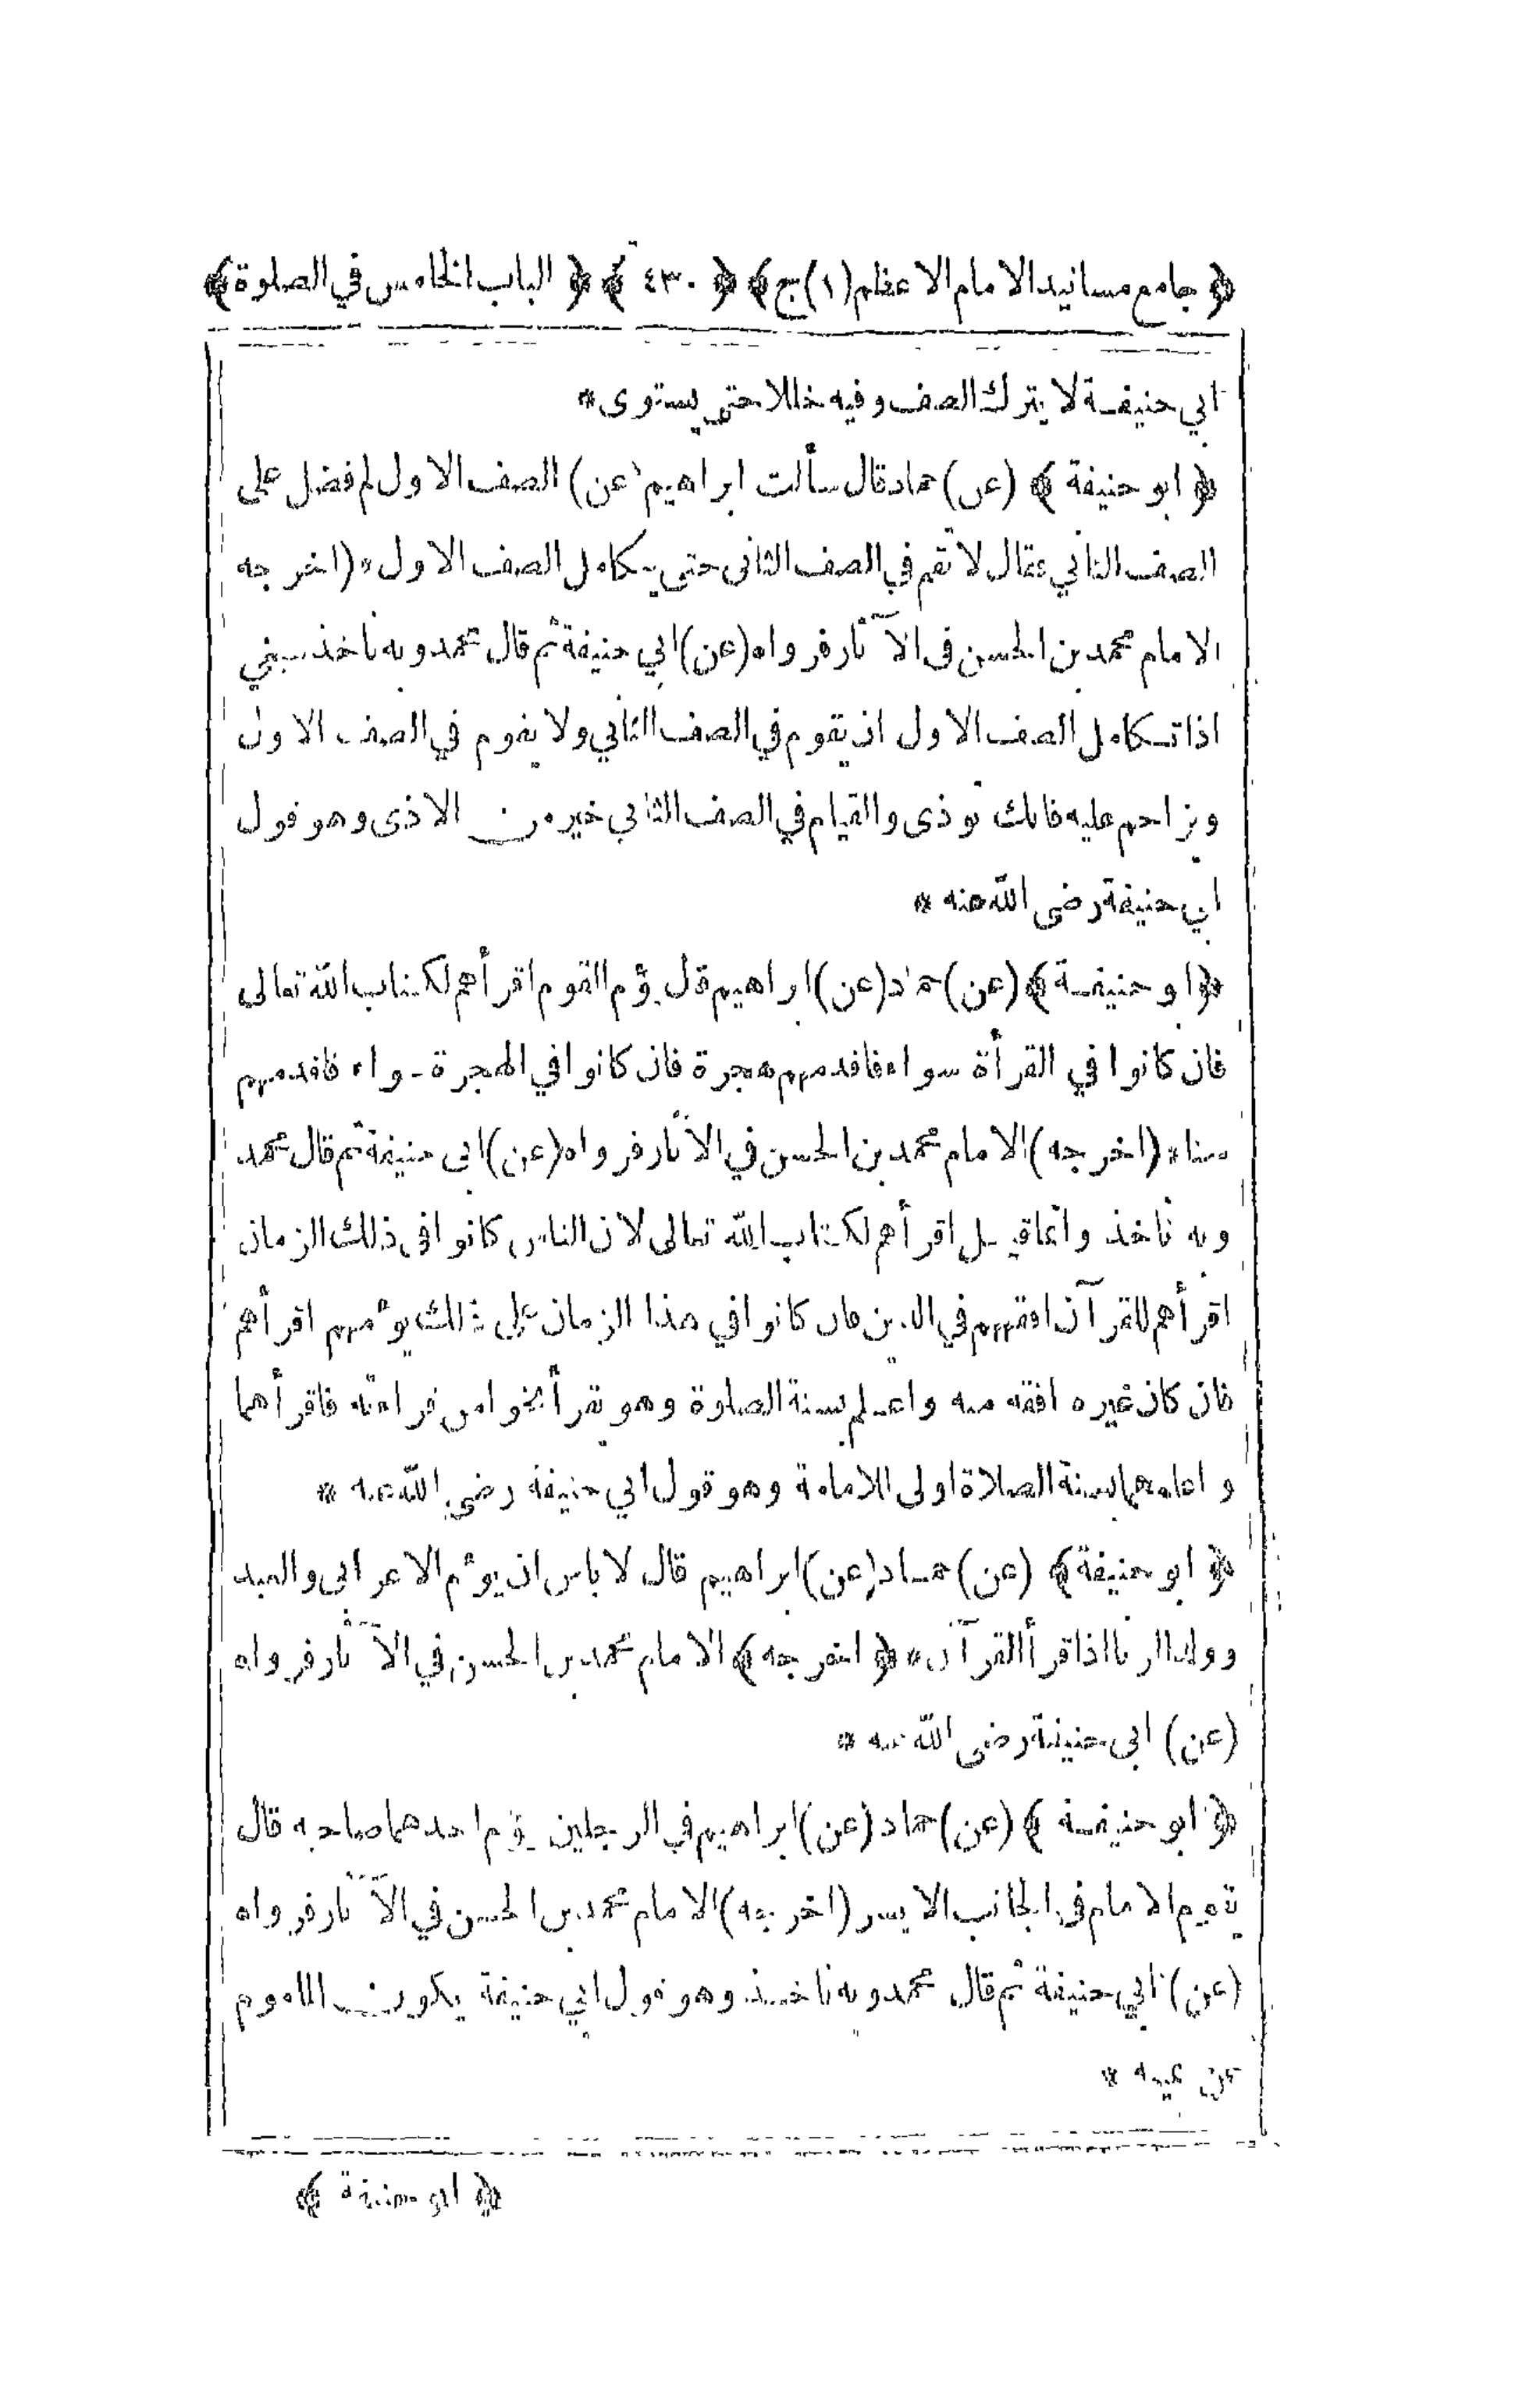 ﴿ جامع مسانيد الامام الاعظم (١) ج ﴾ ﴿ ٤٣٠ ﴾ ﴿ الباب الخامس في الصلوة ﴾
ابي حنيفة لا يترك الصف وفيه خللا حتى يستوى *
﴿ ابو حنيفة ﴾ (عن) حماد قال سألت ابراهيم (عن) الصف الاول لم فضل على
الصف الثاني فقال لا تقم في الصف الثانى حتى يتكامل الصف الاول * (اخرجه
الامام محمد بن الحسن فى الآثار فرواه (عن) ابي حنيفة ثم قال محمد وبه ناخذ ينبغي
اذا تكامل الصف الاول ان يقوم في الصف الثاني ولا يقوم في الصف الاول
ويزاحم عليه فانك توذى والقيام في الصف الثاني خير من الاذى وهو قول
ابي حنيفة رضى الله عنه *
﴿ ابو حنيفة ﴾ (عن) حماد (عن) ابراهيم قال يؤم القوم اقرأهم لكتاب الله تعالى
فان كانوا في القرأة سواء فاقدمهم هجرة فان كانوا في الهجرة سواء فاقدمهم
سنا * (اخرجه) الامام محمد بن الحسن في الآثار فرواه (عن) ابى حنيفة ثم قال محمد
وبه ناخذ وانما قيل اقرأهم لكتاب الله تعالى لان الناس كانوا فى ذلك الزمان
اقرأهم للقرآن افقههم في الدين فان كانوا في هذا الزمان على ذلك يؤمهم اقرأهم
فان كان غيره افقه منه واعلم بسنة الصلوة وهو يقرأ نحوا من قراءته فاقرأهما
واعلمهما بسنة الصلاة اولى للامامة وهو قول ابي حنيفة رضى الله عنه *
﴿ ابو حنيفة ﴾ (عن) حماد (عن) ابراهيم قال لا باس ان يؤم الاعرابى والعبد
وولد الزنا اذا قرأ القرآن * ﴿ اخرجه ﴾ الامام محمد بن الحسن في الآثار فرواه
(عن) ابى حنيفة رضى الله عنه *
﴿ ابو حنيفة ﴾ (عن) حماد (عن) ابراهيم في الرجلين يؤم احدهما صاحبه قال
يقوم الامام في الجانب الايسر (اخرجه) الامام محمد بن الحسن في الآثار فرواه
(عن) ابي حنيفة ثم قال محمد وبه ناخذ وهو قول ابي حنيفة يكون الماموم
عن يمينه *
﴿ ابو حنيفة ﴾